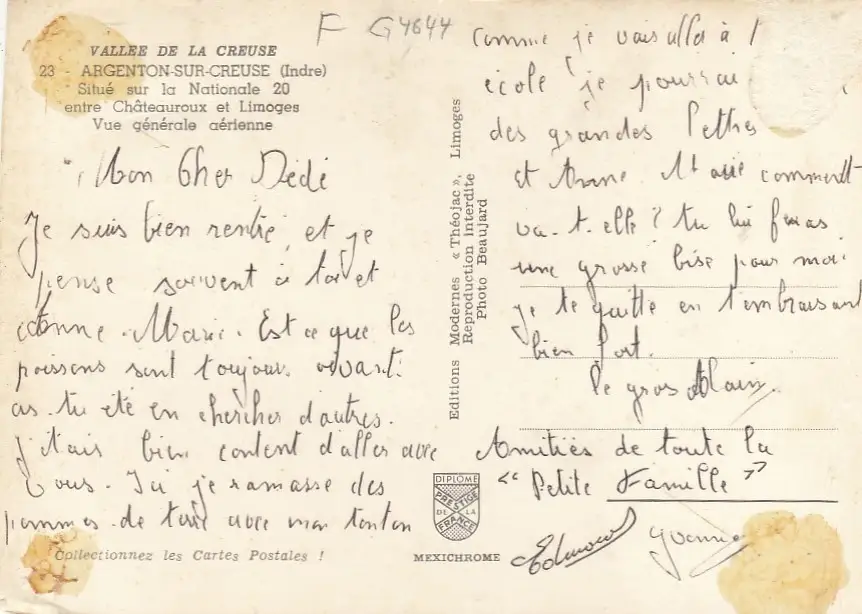 F G4644
VALLEE DE LA CREUSE
23 - ARGENTON-SUR-CREUSE (Indre)
Situé sur la Nationale 20
entre Châteauroux et Limoges
Vue générale aérienne
Mon Cher Dédé
Je suis bien rentré, et je
pense souvent à toi et
Anne-Marie. Est ce que les
poissons sont toujour
as-tu été en chercher d'autres.
j'étais bien content d'aller avec
vous. Ici je ramasse des
pommes de terre avec mon tonton
Collectionnez les Cartes Postales !
Editions Modernes « Théojac », Limoges
Reproduction Interdite
Photo Beaujard
DIPLOME
PRESTIGE
DE LA
FRANCE
MEXICHROME
Comme je vais à l
école je
des grandes lettres
et Anne Marie comment
va-t-elle ? tu lui feras
une grosse bise pour moi
je te quitte en t'embrassant
bien fort.
le gros Alain.
Amitiés de toute la
"Petite Famille"
Edmond Yvonne